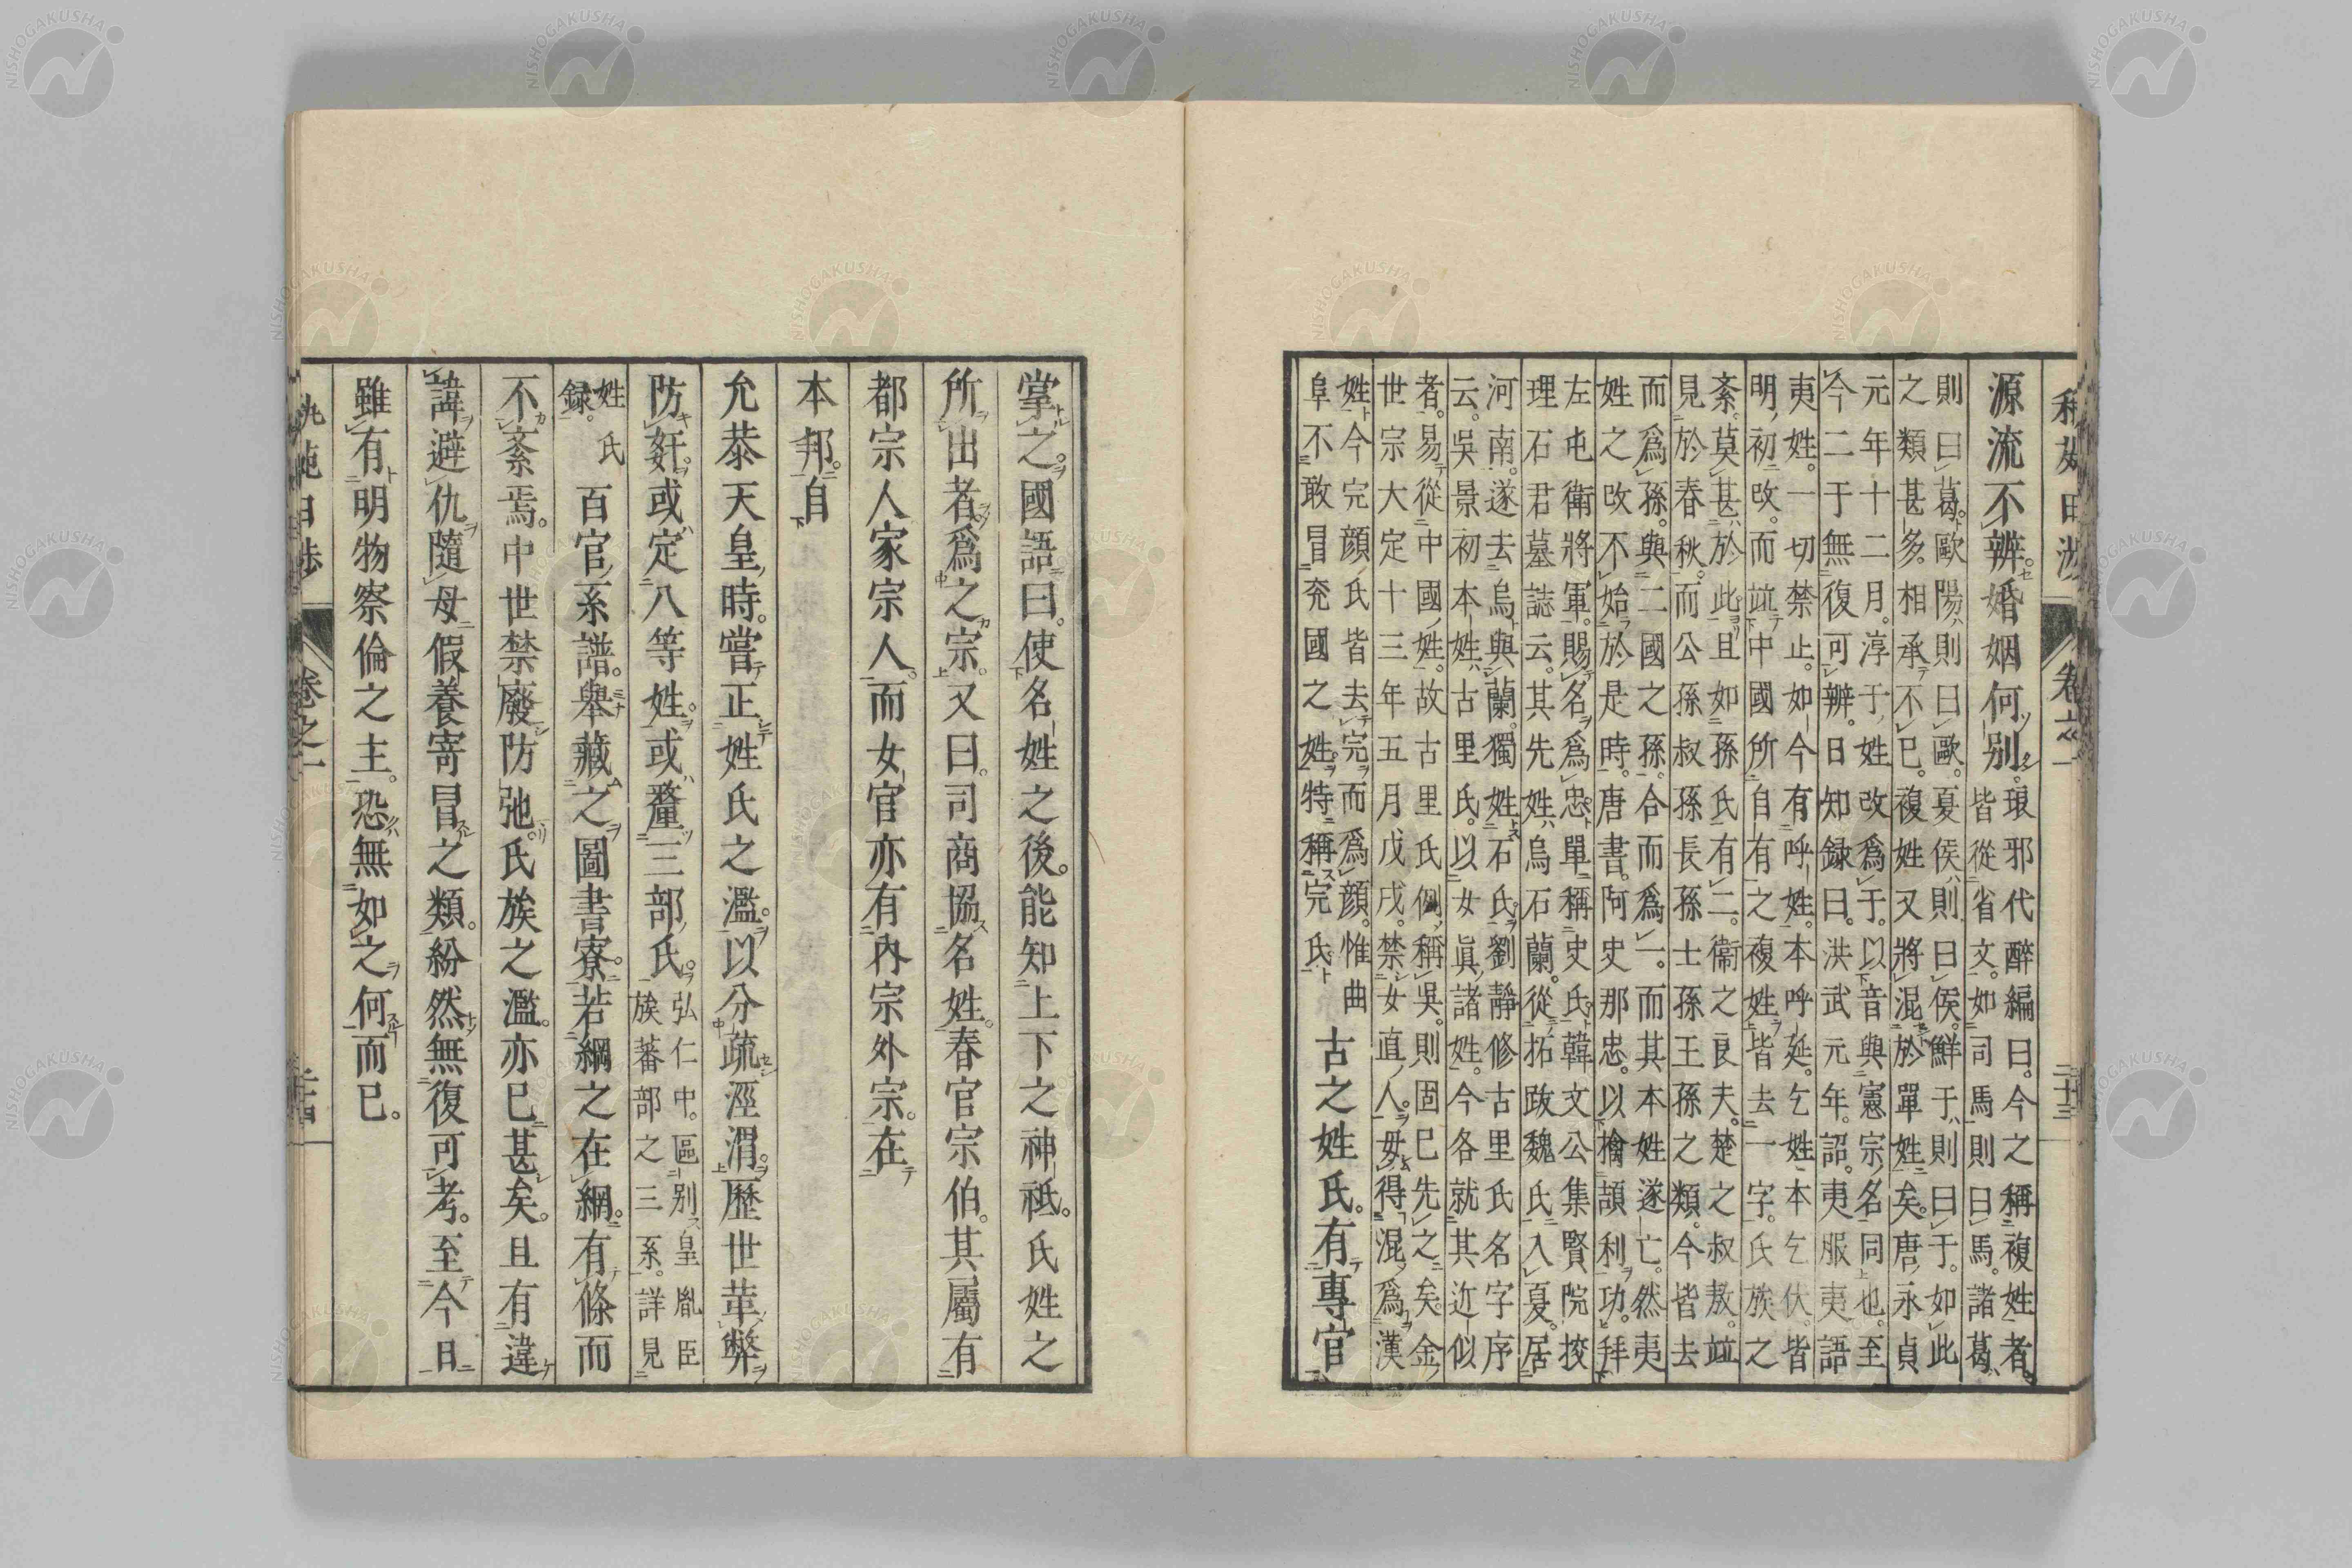 源流不辨婚姻何別。琅邪代醉編曰。今之稱複姓者。
皆從省文。如司馬則曰馬。諸葛
則曰葛。歐陽則曰歐。夏侯則曰侯。鮮于則曰于。如此
之類甚多。相承不已。複姓又將混於單姓矣。唐永貞
元年十二月。淳于姓改爲于。以音與憲宗名同也。至
今二于無復可辨。日知録曰。洪武元年。詔夷服夷語
夷姓。一切禁止。如今有呼姓。本呼延。乞姓本乞伏。皆
明初改。而竝中國所自有之複姓皆去一字。氏族之
紊。莫甚於此。且如孫氏有二。衞之良夫。楚之叔敖。竝
見於春秋。而公孫叔孫長孫士孫王孫之類。今皆去
而爲孫。與二國之孫。合而爲一。而其本姓遂亡。然夷
姓之改不始於是時。唐書。阿史那忠。以擒頡利功。拜
左屯衛將軍。賜名爲忠。單稱史氏。韓文公集賢院挍
理石君墓誌云。其先姓烏石蘭。從拓跋魏氏入夏。居
河南。遂去烏與蘭。獨姓石氏。劉靜修古里氏名字序
云。吳景初本姓古里氏。以女眞諸姓。今各就其近似
者。易從中國姓。故古里氏例稱吳。則固已先之矣。金
世宗大定十三年五月戊戌。禁女直人。毋得混爲漢
姓。今完顔氏皆去完而爲顔。惟曲
阜不敢冒兗國之姓。特稱完氏。古之姓氏。有專官
掌之。國語曰。使名姓之後。能知上下之神祇。氏姓之
所出者。爲之宗。又曰。司商協名姓。春官宗伯。其屬有
都宗人家宗人。而女官亦有內宗外宗。在
本邦。自
允恭天皇時。嘗正姓氏之濫。以分疏涇渭。歷世革弊
防奸。或定八等姓。或釐三部氏。弘仁中。區別皇胤臣
族蕃部之三系。詳見
姓氏
録。百官系譜。舉藏之圖書寮。若綱之在綱。有條而
不紊焉。中世禁廢防弛。氏族之濫。亦已甚矣。且有違
諱避仇隨母假養寄冒之類。紛然無復可考。至今日
雖有明物察倫之主。恐無如之何而已。
卷之一
二十三
卷之一
二十四